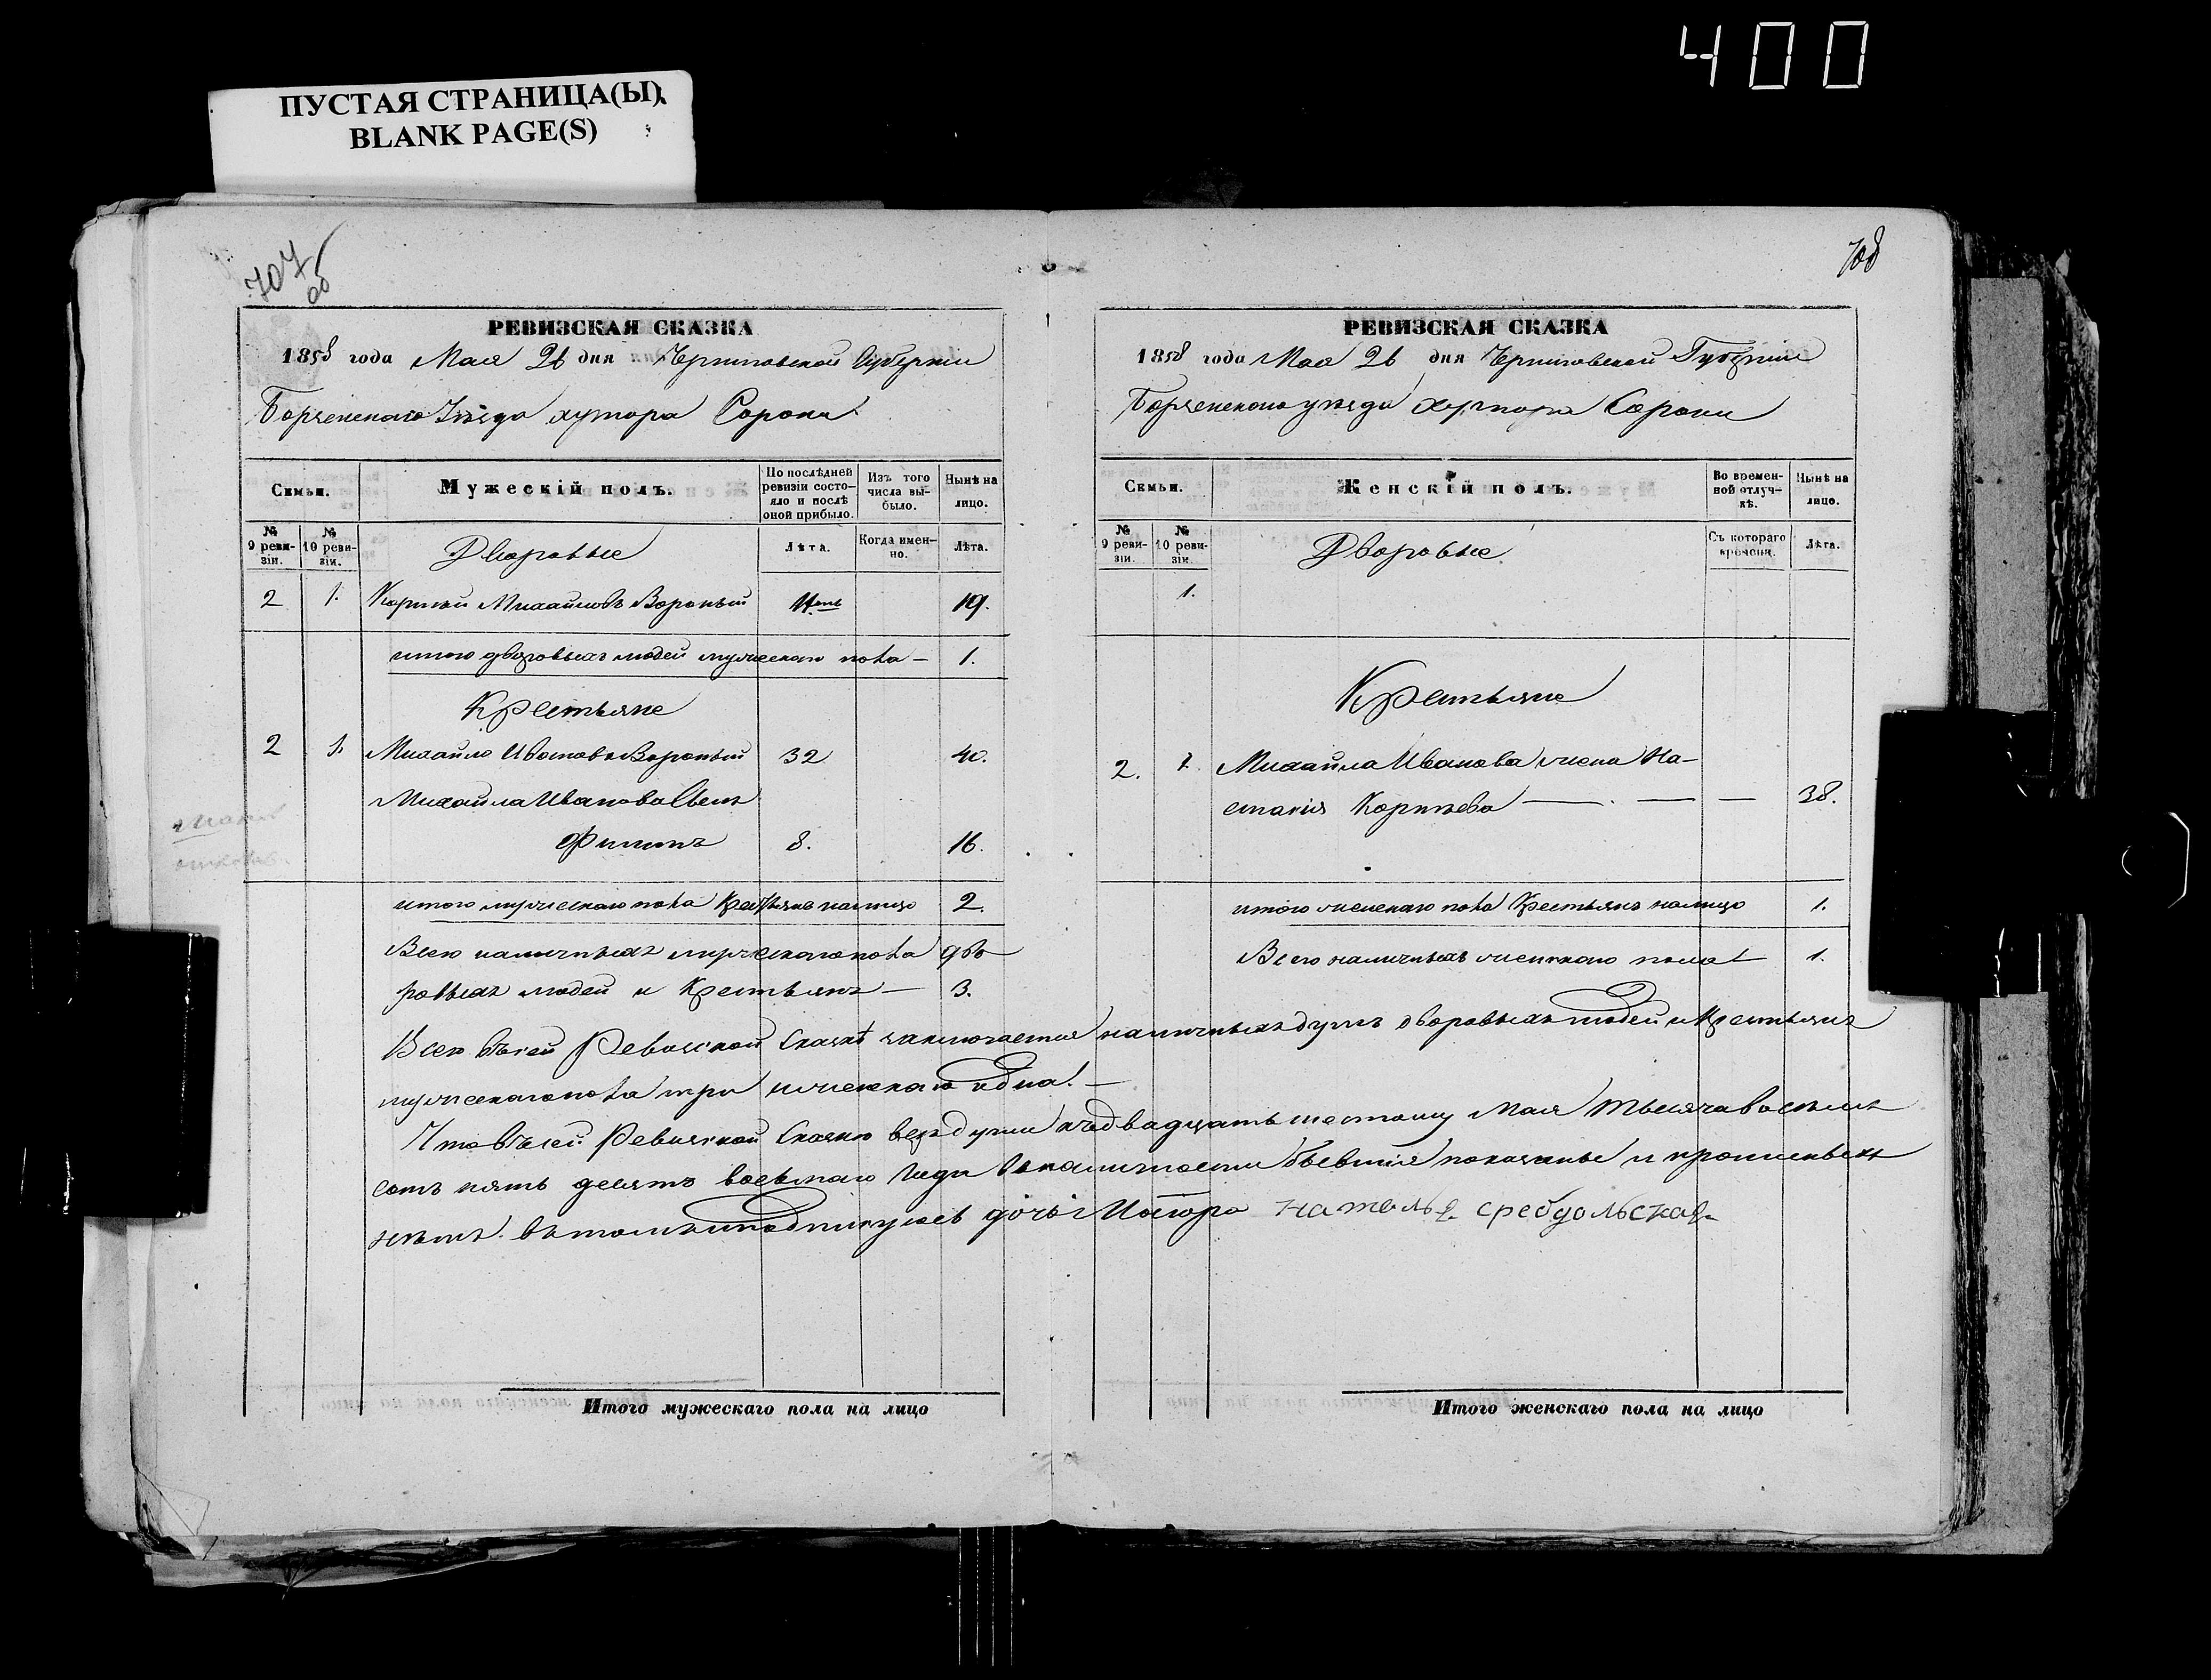 400
ПУСТАЯ СТРАНИЦА(Ы)
BLANK PAGE(S)
707
708
РЕВИЗСКАЯ СКАЗКА
1858 года Мая 26 дня Черниговской Губерніи
Борзенскаго Уѣзда хутора Сороки
Семьи.
Мужескій полъ.
По послѣдней ревизіи состояло и послѣ оной прибыло.
Изъ того числа выбыло.
Нынѣ на лицо.
№ 9 ревизіи.
№ 10 ревизіи.
Дворовые
Лѣта.
Когда именно.
Лѣта.
2 1. Корнѣй Михайловъ Вороный 11 19.
итого дворовыхъ людей мужескаго пола — 1.
Крестьяне
2 1. Михайло Ивановъ Вороный 32 40.
Михайла Иванова Сынъ
Филипъ 8. 16.
итого мужескаго пола Крестьянъ налицо 2.
Всего наличныхъ мужескаго пола дво
ровыхъ людей и Крестьянъ — 3.
Итого мужескаго пола на лицо
РЕВИЗСКАЯ СКАЗКА
1858 года Мая 26 дня Черниговской Губерніи
Борзенскаго уѣзда хутора Сороки
Семьи.
Женскій полъ.
Во временной отлучкѣ.
Нынѣ на лицо.
№ 9 ревизіи.
№ 10 ревизіи.
Дворовые
Съ котораго времени.
Лѣта.
1.
Крестьяне
2. 1. Михайла Иванова жена На-
стасія Корнѣева — . — — 38.
итого женскаго пола Крестьянъ налицо 1.
Всего наличныхъ женскаго пола 1.
Всего въ сей Ревизской Сказкѣ заключается наличныхъ душъ дворовыхъ людей и Крестьянъ
мужескаго пола три и женскаго одна. —
Что въ сей Ревизской Сказке всѣ души къ двадцать шестому Мая тысяча восемь
сотъ пять десятъ восьмаго года въ наличности бывшіе показаны и прописныхъ
нѣтъ. въ томъ и подписуюсь дочь Маіора Наталья средольская
Итого женскаго пола на лицо